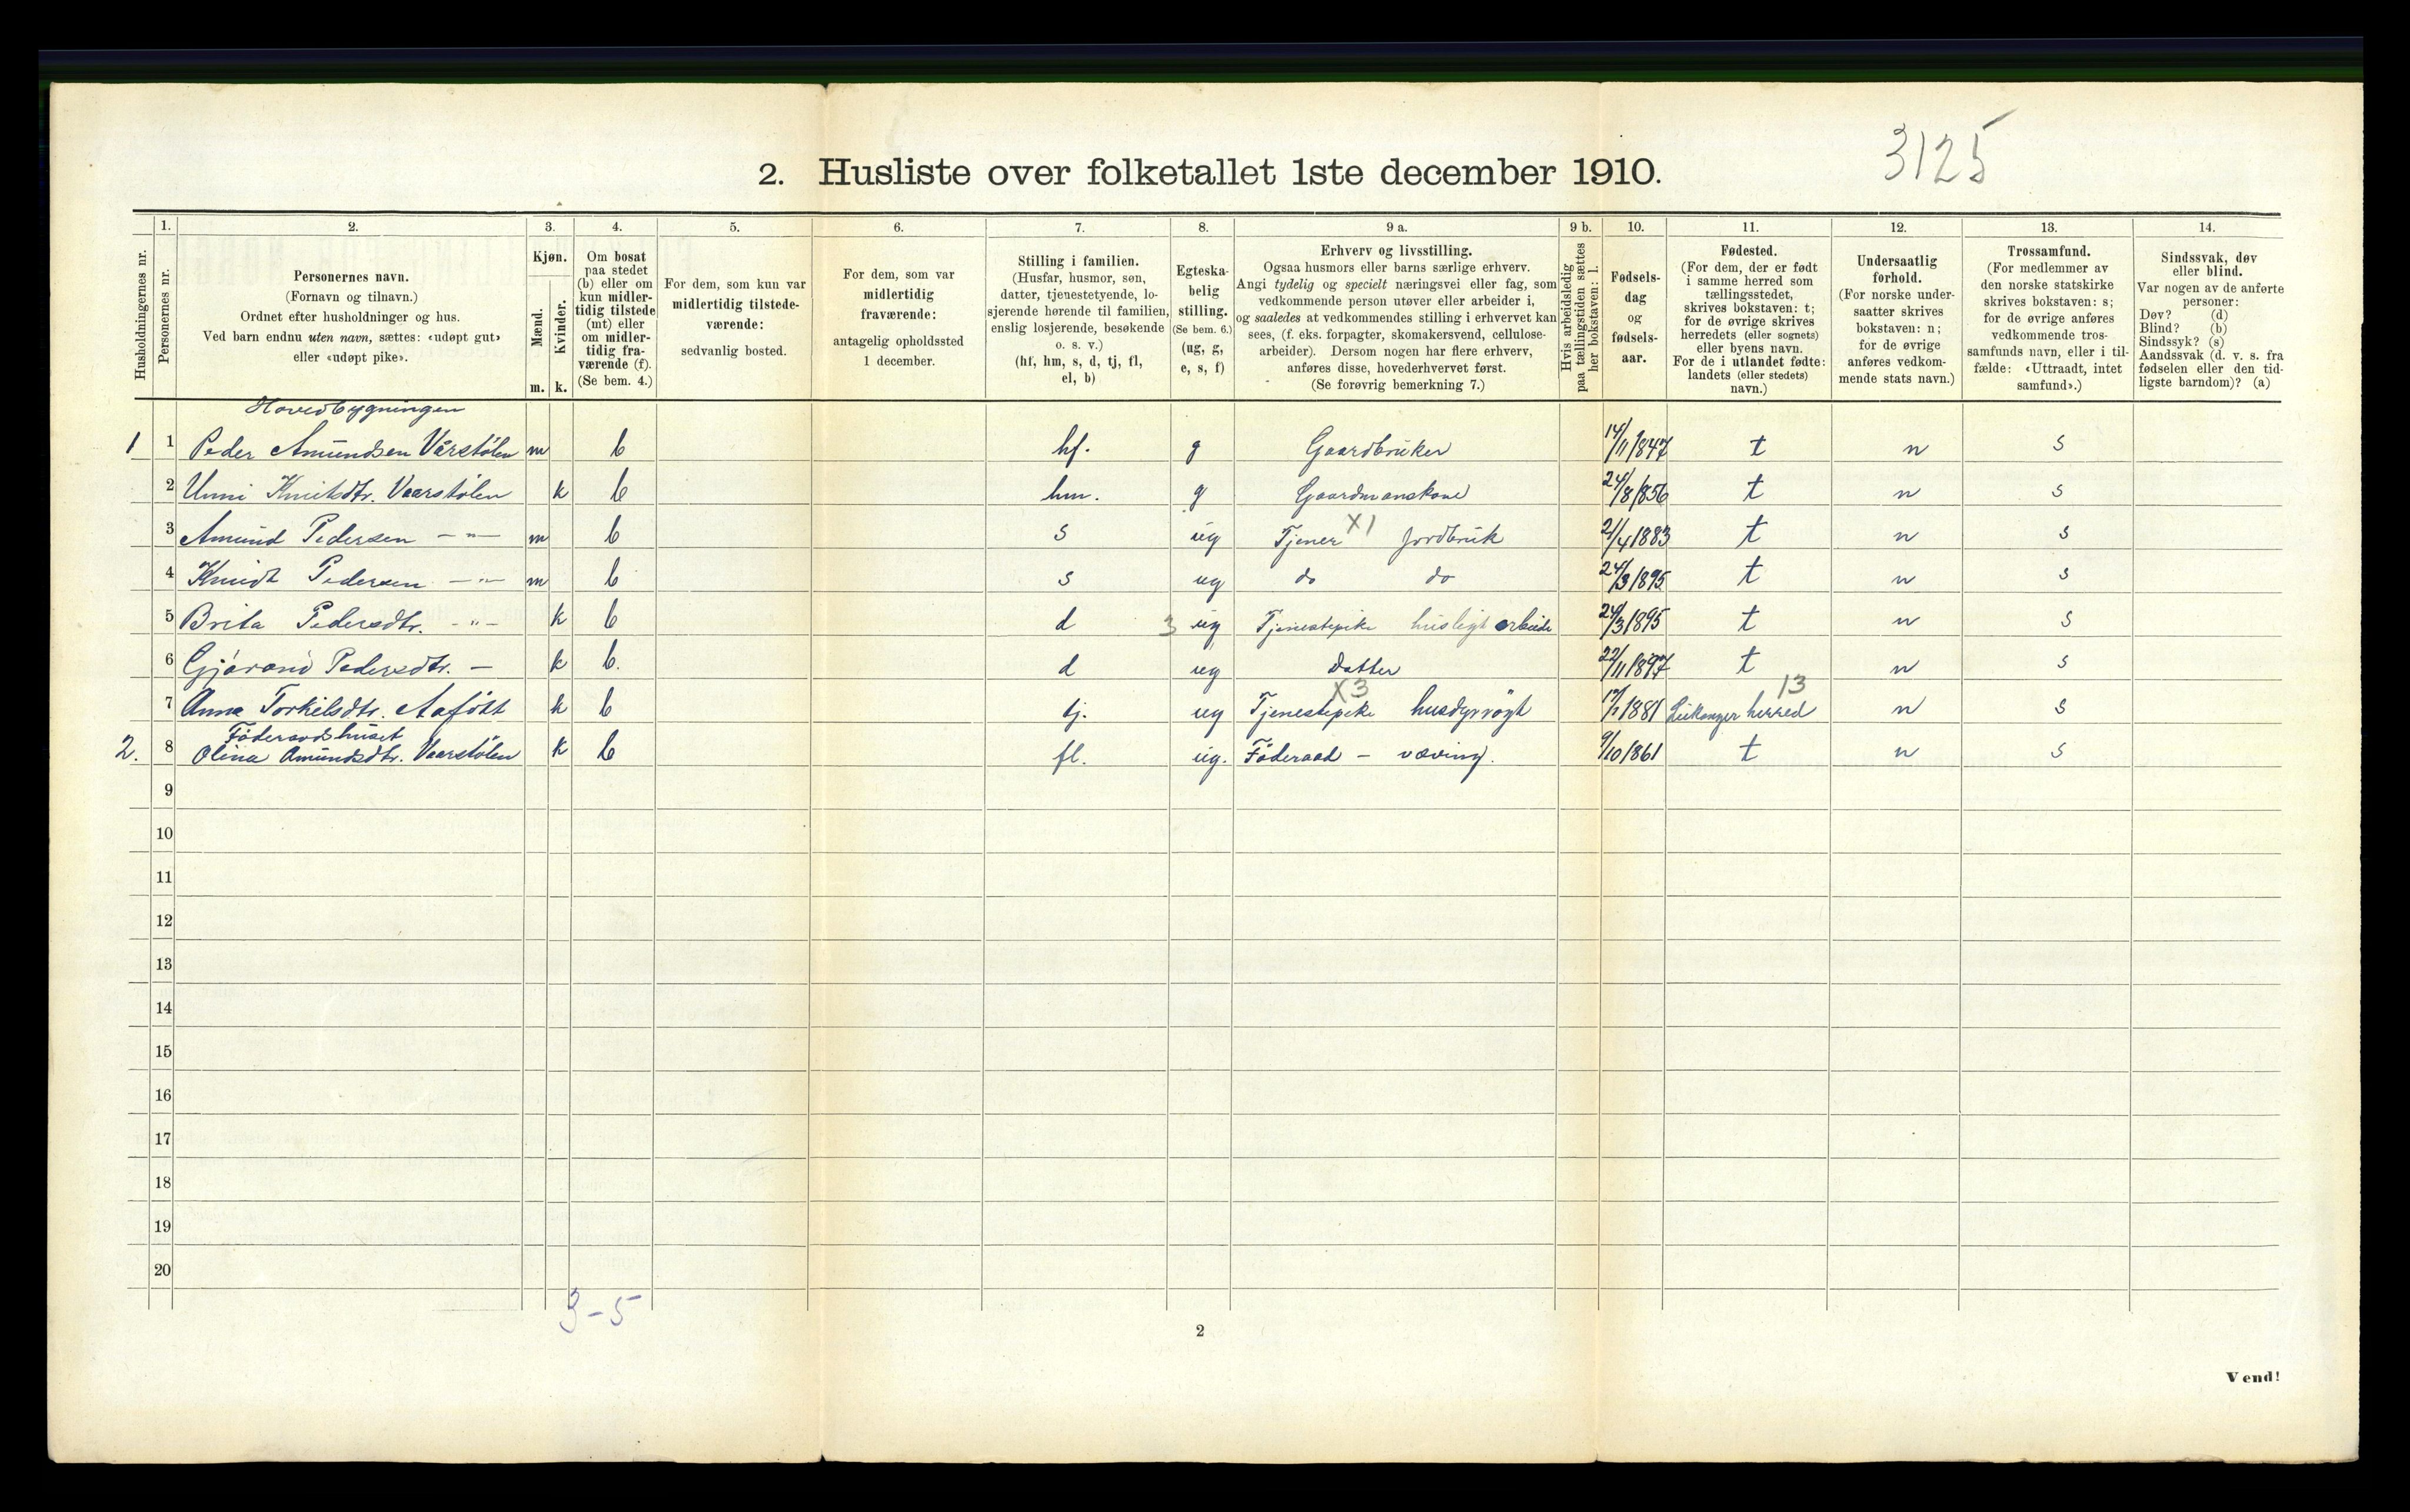 3125
2. Husliste over folketallet 1ste december 1910.
Husholdningernes nr.
1.
Personernes nr.
2.
Personernes navn.
(Fornavn og tilnavn.)
Ordnet efter husholdninger og hus.
Ved barn endnu uten navn, sættes: «udøpt gut»
eller «udøpt pike».
3.
Kjøn.
Mænd.
Kvinder.
m. k.
4.
Om bosat
paa stedet
(b) eller om
kun midler-
tidig tilstede
(mt) eller
om midler-
tidig fra-
værende (f).
(Se bem. 4.)
5.
For dem, som kun var
midlertidig tilstede-
værende:
sedvanlig bosted.
6.
For dem, som var
midlertidig
fraværende:
antagelig opholdssted
1 december.
7.
Stilling i familien.
(Husfar, husmor, søn,
datter, tjenestetyende, lo-
sjerende hørende til familien,
enslig losjerende, besøkende
o. s. v.)
(hf, hm, s, d, tj, fl,
el, b)
8.
Egteska-
belig
stilling.
(Se bem. 6.)
(ug, g,
e, s, f)
9 a.
Erhverv og livsstilling.
Ogsaa husmors eller barns særlige erhverv.
Angi tydelig og specielt næringsvei eller fag, som
vedkommende person utøver eller arbeider i,
og saaledes at vedkommendes stilling i erhvervet kan
sees, (f. eks. forpagter, skomakersvend, cellulose-
arbeider). Dersom nogen har flere erhverv,
anføres disse, hovederhvervet først.
(Se forøvrig bemerkning 7.)
9 b.
Hvis arbeidsledig
paa tællingstiden sættes
her bokstaven: l.
10.
Fødsels-
dag
og
fødsels-
aar.
11.
Fødested.
(For dem, der er født
i samme herred som
tællingsstedet,
skrives bokstaven: t;
for de øvrige skrives
herredets (eller sognets)
eller byens navn.
For de i utlandet fødte:
landets (eller stedets)
navn.)
12.
Undersaatlig
forhold.
(For norske under-
saatter skrives
bokstaven: n;
for de øvrige
anføres vedkom-
mende stats navn.)
13.
Trossamfund.
(For medlemmer av
den norske statskirke
skrives bokstaven: s;
for de øvrige anføres
vedkommende tros-
samfunds navn, eller i til-
fælde: «Uttraadt, intet
samfund».)
14.
Sindssvak, døv
eller blind.
Var nogen av de anførte
personer:
Døv? (d)
Blind? (b)
Sindssyk? (s)
Aandssvak (d. v. s. fra
fødselen eller den tid-
ligste barndom)? (a)
Hovedbygningen
1 1 Peder Amundsen Vårstölen m b hf. g Gaardbruker 14/11 1847 t n s
2 Unni Knutsdtr. Vaarstölen k b hm. g Gaardmanskone 24/8 1856 t n s
3 Amund Pedersen - " - m b s ug Tjener X1 Jordbruk 21/4 1883 t n s
4 Knudt Pedersen - " - m b s ug do do 24/3 1895 t n s
5 Brita Pedersdtr. - " - k b d 3 ug Tjenestepike husligt arbeide 24/3 1895 t n s
6 Gjörand Pedersdtr. - k b. d ug datter 22/11 1897 t n s
X3 13
7 Anna Torkilsdtr. k b tj. ug Tjenestepike husdyrrögt 1881 Leikanger herred n s
Föderaadshuset
2. 8 Olina Amundsdtr. Vaarstölen k b fl. ug. Föderaad - væving. 9/10 1861 t n s
9
10
11
12
13
14
15
16
17
18
19
20
3-5
2
Vend!